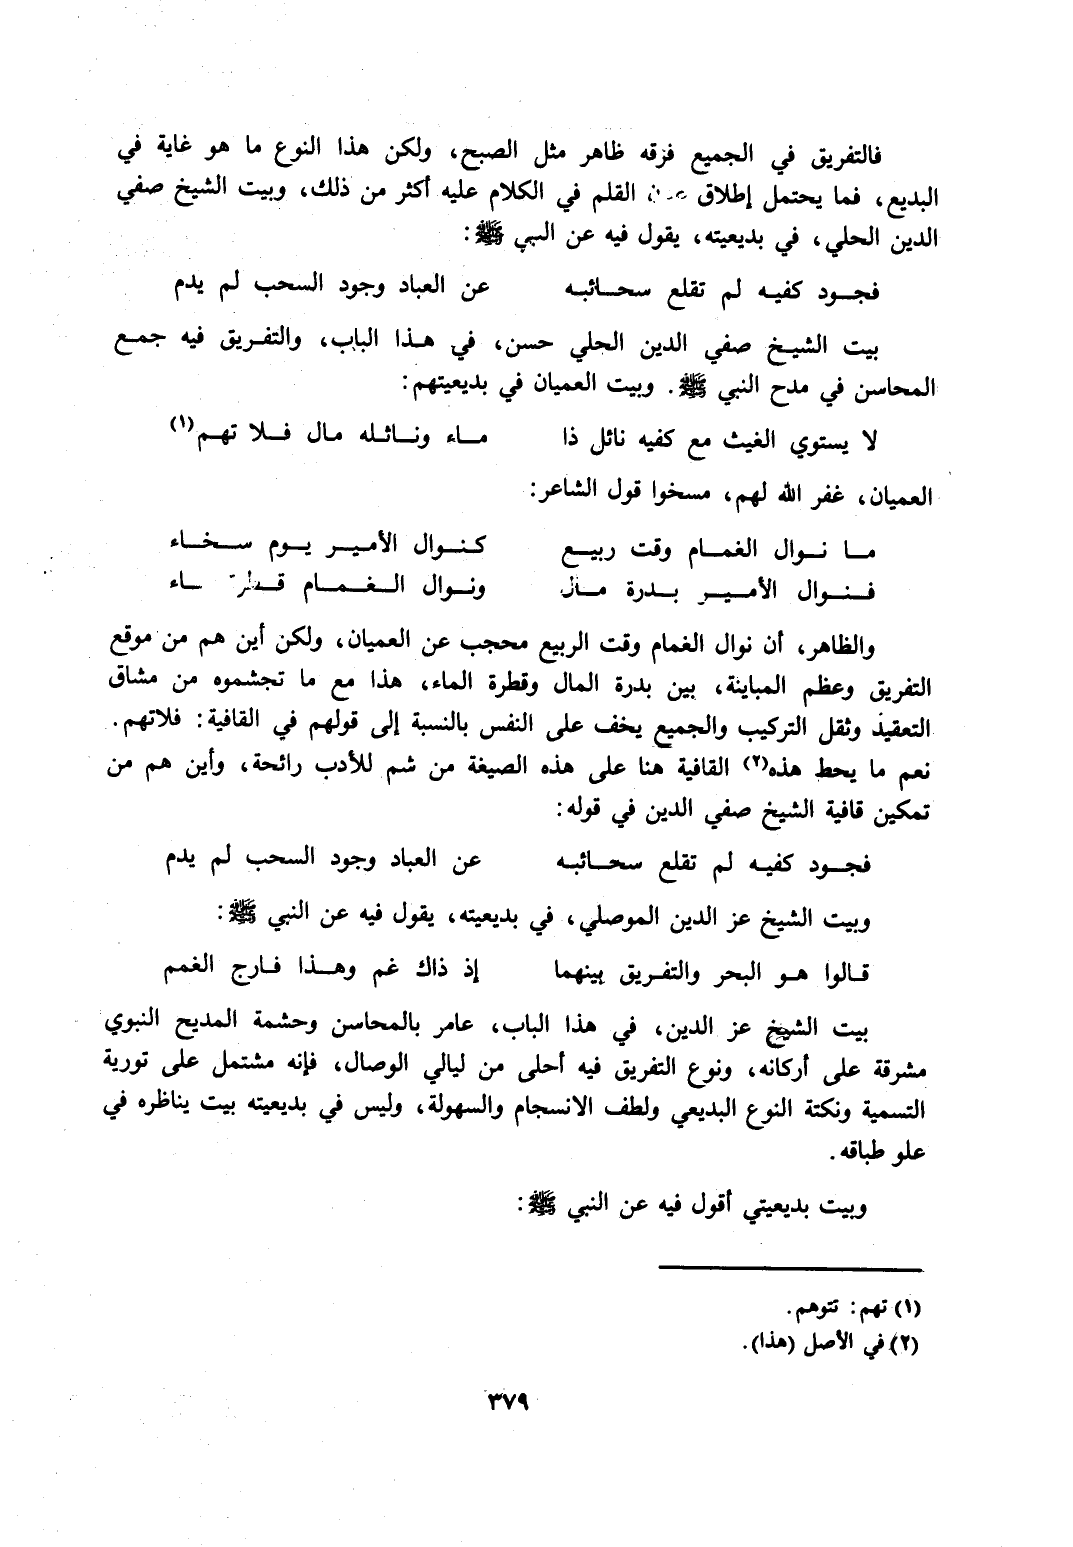 فالتفريق في الجميع فرقه ظاهر مثل الصبح، ولكن هذا النوع ما هو غاية في
البديع، فما يحتمل إطلاق القلم في الكلام عليه أكثر من ذلك، وبيت الشيخ صفي
الدين الحلي، في بديعيته، يقول فيه عن النبي ﷺ:
فجود كفيه لم تقلع سحائبه عن العباد وجود السحب لم يدم
بيت الشيخ صفي الدين الحلي حسن، في هذا الباب، والتفريق فيه جمع
المحاسن في مدح النبي ﷺ. وبيت العميان في بديعيتهم:
لا يستوي الغيث مع كفيه نائل ذا ماء ونائله مال فلا تهم(١)
العميان، غفر الله لهم، مسخوا قول الشاعر:
ما نوال الغمام وقت ربيع كنوال الأمير يوم سخاء
فنوال الأمير بدرة مال ونوال الغمام قطرة ماء
والظاهر، أن نوال الغمام وقت الربيع محجب عن العميان، ولكن أين هم من موقع
التفريق وعظم المباينة، بين بدرة المال وقطرة الماء، هذا مع ما تجشموه من مشاق
التعقيد وثقل التركيب والجميع يخف على النفس بالنسبة إلى قولهم في القافية: فلاتهم.
نعم ما يحط هذه(٢) القافية هنا على هذه الصيغة من شم للأدب رائحة، وأين هم من
تمكين قافية الشيخ صفي الدين في قوله:
فجود كفيه لم تقلع سحائبه عن العباد وجود السحب لم يدم
وبيت الشيخ عز الدين الموصلي، في بديعيته، يقول فيه عن النبي ﷺ:
قالوا هو البحر والتفريق بينهما إذ ذاك غم وهذا فارج الغمم
بيت الشيخ عز الدين، في هذا الباب، عامر بالمحاسن وحشمة المديح النبوي
مشرقة على أركانه، ونوع التفريق فيه أحلى من ليالي الوصال، فإنه مشتمل على تورية
التسمية ونكتة النوع البديعي ولطف الانسجام والسهولة، وليس في بديعيته بيت يناظره في
علو طباقه.
وبيت بديعيتي أقول فيه عن النبي ﷺ:
(١) تهم: تتوهم.
(٢) في الأصل (هذا).
٣٧٩